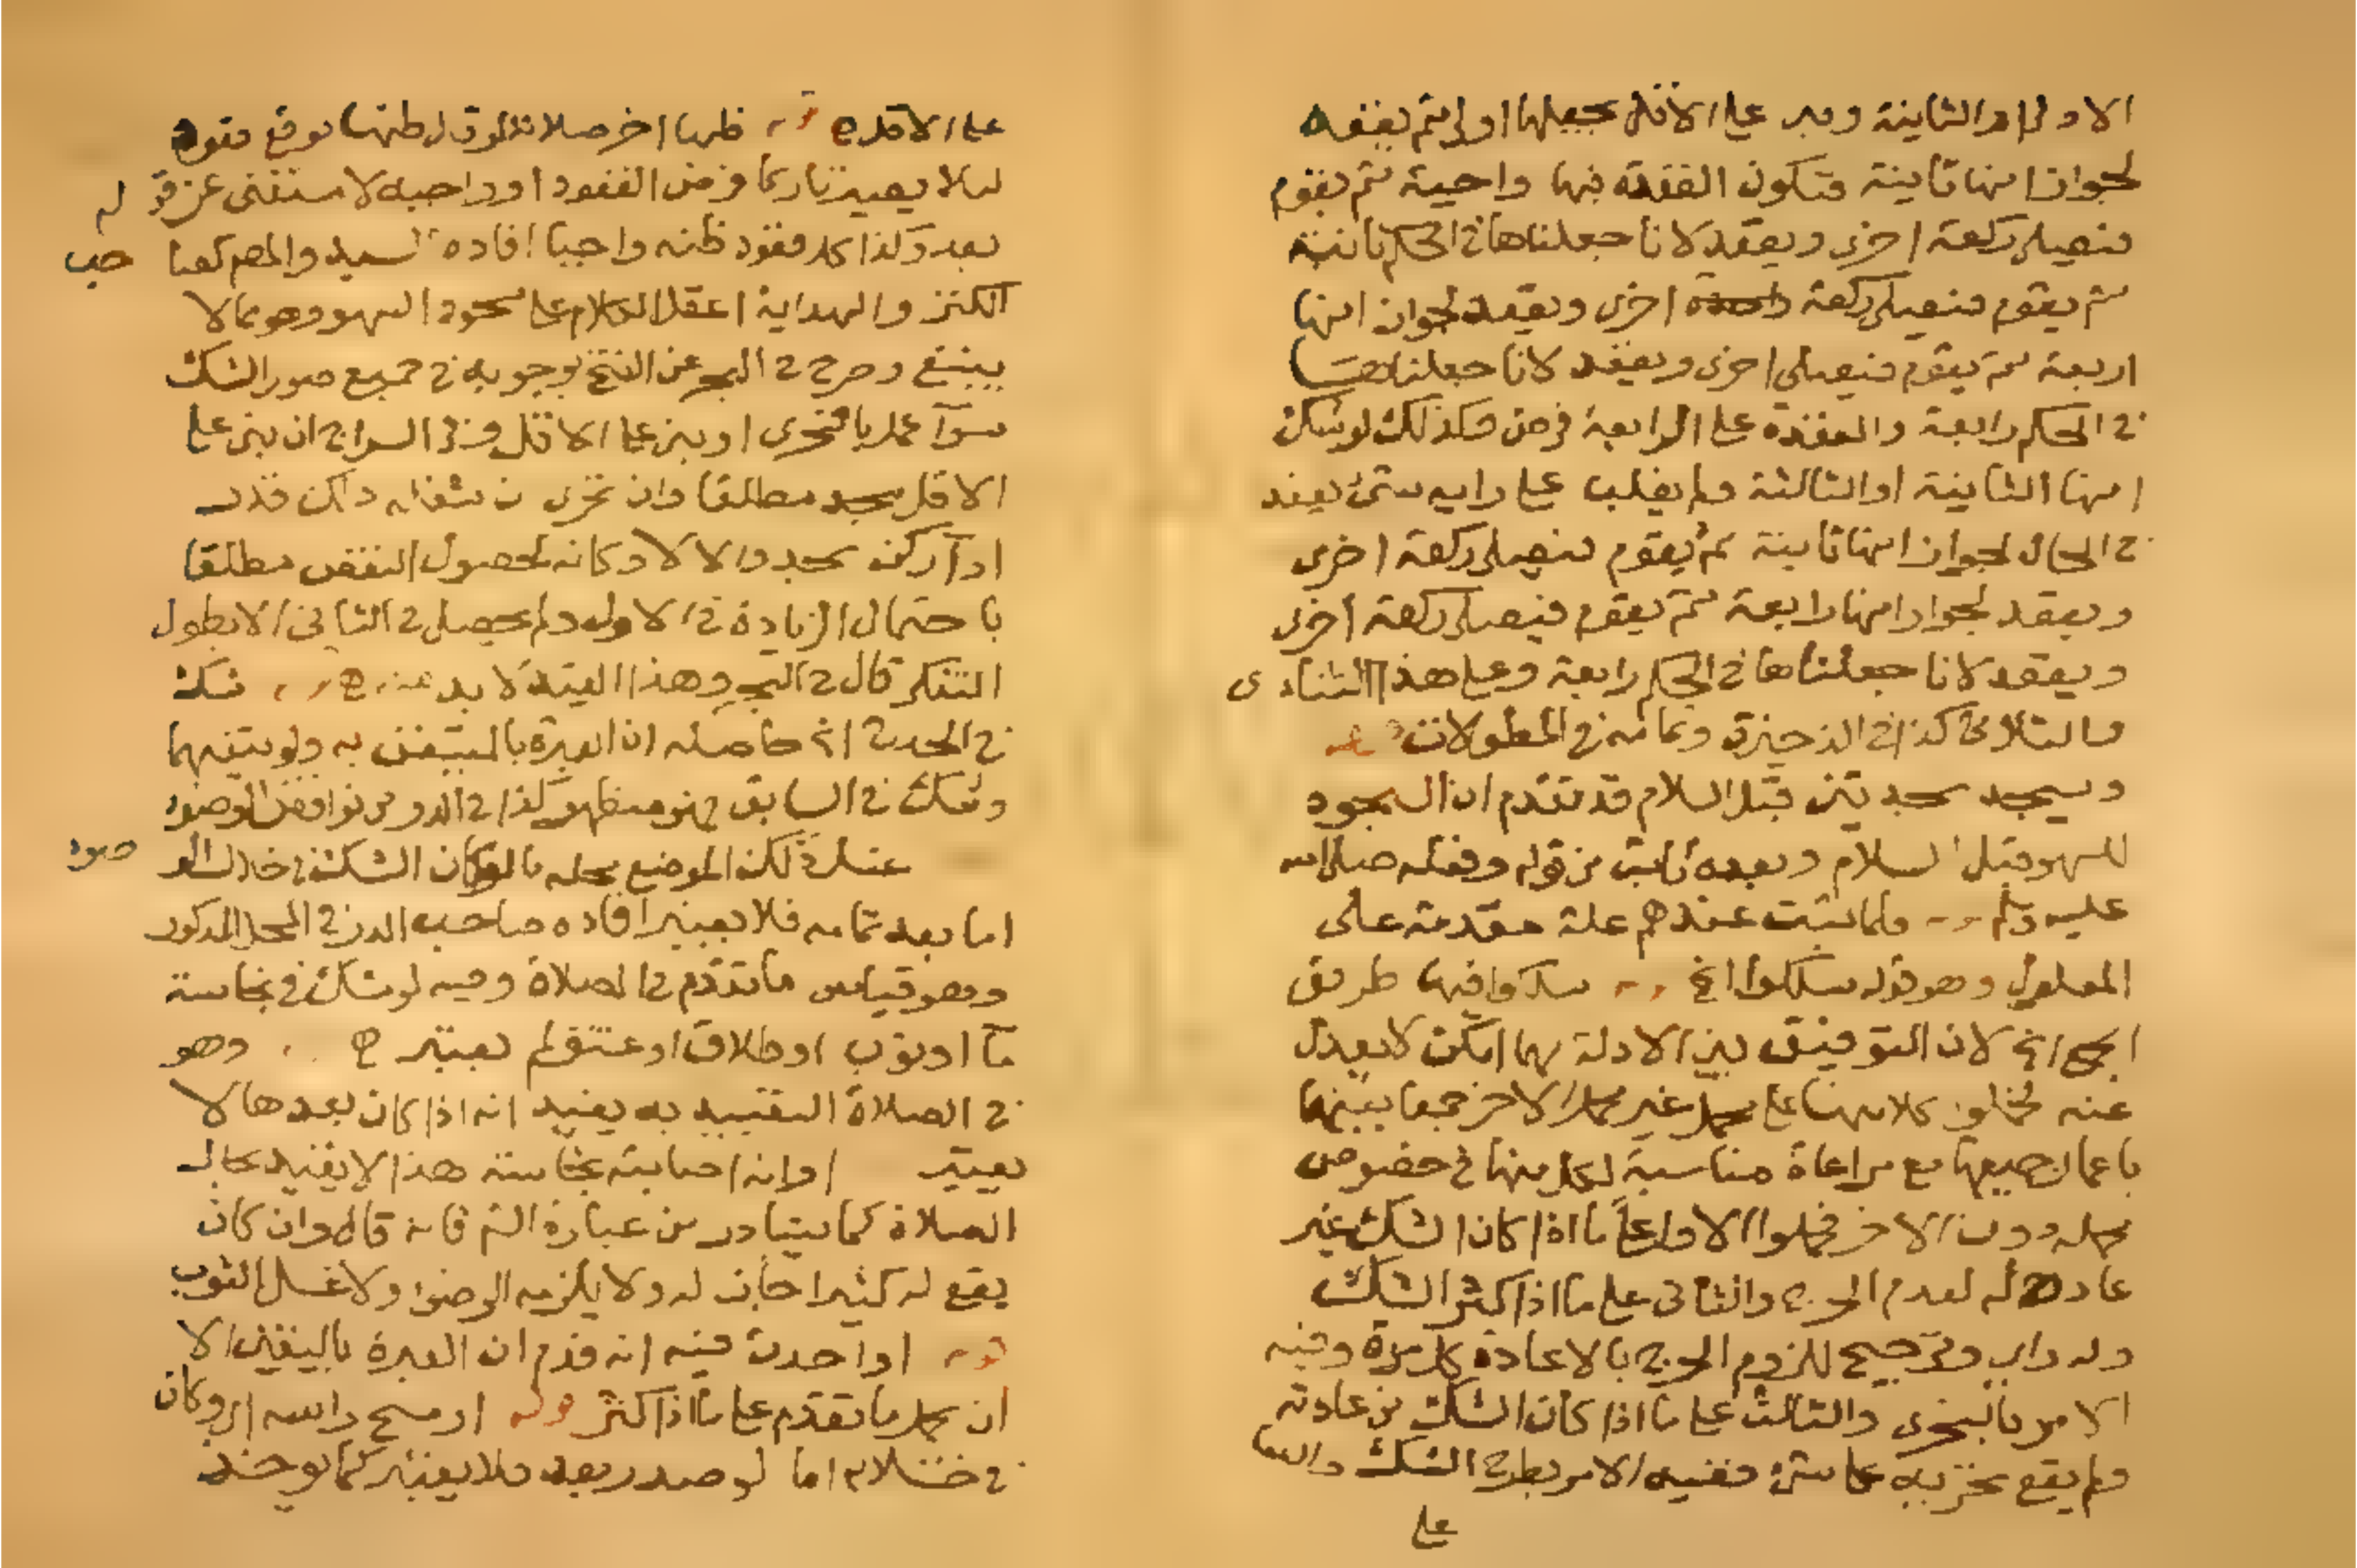 الاولى او الثانية وبنى على الاقل يجعلها اولى ثم يقعد
لجواز انها ثانية فتكون القعدة فيها واجبة ثم يقوم
فيصلى ركعة اخرى ويقعد لانا جعلناها فى الحكم ثانية
ثم يقوم فيصلى ركعة اخرى ويقعد لجواز انها
اربعة ثم يقوم فيصلى اخرى ويقعد لانا جعلناها
فى الحكم رابعة والقعدة على الرابعة فرض وكذلك لو شك
انها الثانية او الثالثة ولم يغلب على رايه شئ يقعد
فى الحال لجواز انها ثانية ثم يقوم فيصلى ركعة اخرى
ويقعد لجواز انها رابعة ثم يقوم فيصلى ركعة اخرى
ويقعد لانا جعلناها فى الحكم رابعة وعلى هذا الثناءى
والثلاثى كذا فى الذخيرة وتمامه فى المطولات
ويسجد سجدتين قبل السلام قد تقدم ان السجود
للسهو قبل السلام وبعده ثابت من قوله وفعله صلى الله
عليه وسلم ولما ثبت عندهم علة مقدمة على
المعلول وهو قوله سلكوا الخ سلكوا فيها طريق
الجمع الخ لان التوفيق بين الادلة مهما امكن لا يعدل
عنه فحملوا كلا منها على محمل غير محمل الاخر جمعا بينها
باعمال جميعها مع مراعاة مناسبة لكل منها فى خصوص
محله دون الاخر فحملوا الاول على ما اذا كان الشك غير
عادة له لعدم الحرج والثانى على ما اذا كثر الشك
وله راى وترجيح للزوم الحرج بالاعادة كل مرة وفيه
الامر بالتحرى والثالث على ما اذا كان الشك من عادته
ولم يقع تحريه على شئ ففيه الامر بطرح الشك والبنا
على
على الاقل ظنها اخر صلاته لوقوله ظنها موقع قعود
لئلا يصير تاركا فرض القعود او واجبه لاستغنى عن قوله
بعد وكذا كل قعود ظنه واجبا افاده السيد والمصم كصاحب
الكنز والهداية اغفل الكلام على سجود السهو وهو مما لا
ينبغى وصرح فى البحر عن الفتح بوجوبه فى جميع صور الشك
سواء عمل بالتحرى او بنى على الاقل وفى السراج ان بنى على
الاقل يسجد مطلقا وان تحرى ان شغله ذلك قدر
اداء ركن سجد والا لا وكانه لحصول النقص مطلقا
باحتمال الزيادة فى الاول ولم يحصل فى الثانى الا بطول
التفكر قال فى البحر وهذا القيد لا بد منه شك
فى الحدث الخ حاصله ان العبرة بالمتيقن به ولو تيقنهما
وشك فى السابق فهو متطهر كذا فى الدر من نواقض الوضوء
عند ذلك الموضع محله ما لو كان الشك فى خلال الوضوء
اما بعد تمامه فلا يعتبر افاده صاحب الدر فى المحل المذكور
وهو قياس ما تقدم فى الصلاة وفيه لو شك فى نجاسة
ماء او ثوب او طلاق او عتق لم يعتبر وهو
فى الصلاة التقييد به يفيد انه اذا كان بعدها لا
يعتبر او انه اصابته نجاسة هذا لا يقيد بحال
الصلاة كما يتبادر من عبارة الشر فانه قال وان كان
يقع له كثيرا جاز له ولا يلزمه الوضوء ولا غسل الثوب
قوله او احدث فيه انه قدم ان العبرة باليقين الا
ان يحمل ما تقدم على ما اذا كثر قوله او مسح راسه اى وكان
فى خلاله اما لو صدر بعده فلا يعتبر كما يوخذ